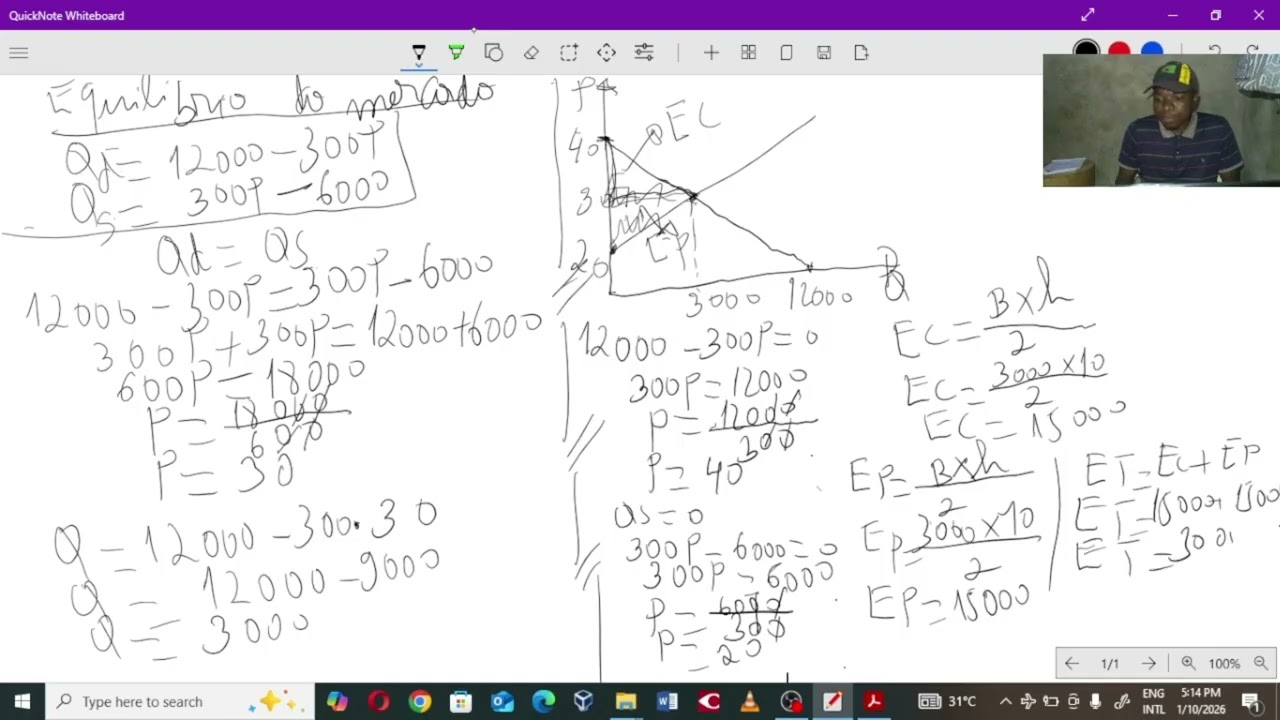 QuickNote Whiteboard
Equilibrio do mercado
Qd = 12000 - 300P
Qs = 300P - 6000
Qd = Qs
12000 - 300P = 300P - 6000
300P + 300P = 12000 + 6000
600P = 18000
P = 18000
600
P = 30
Q = 12000 - 300.30
Q = 12000 - 9000
Q = 3000
P
EC
40
30
EP
20
3000 12000 Q
12000 - 300P = 0
300P = 12000
P = 12000
300
P = 40
Qs = 0
300P - 6000 = 0
300P = 6000
P = 6000
300
P = 20
EC = B x h
2
EC = 3000 x 10
2
EC = 15000
EP = B x h
2
EP = 3000 x 10
2
EP = 15000
ET = EC + EP
ET = 15000 + 1500
ET = 300
1/1
100%
Type here to search
31°C
ENG
INTL
5:14 PM
1/10/2026
1